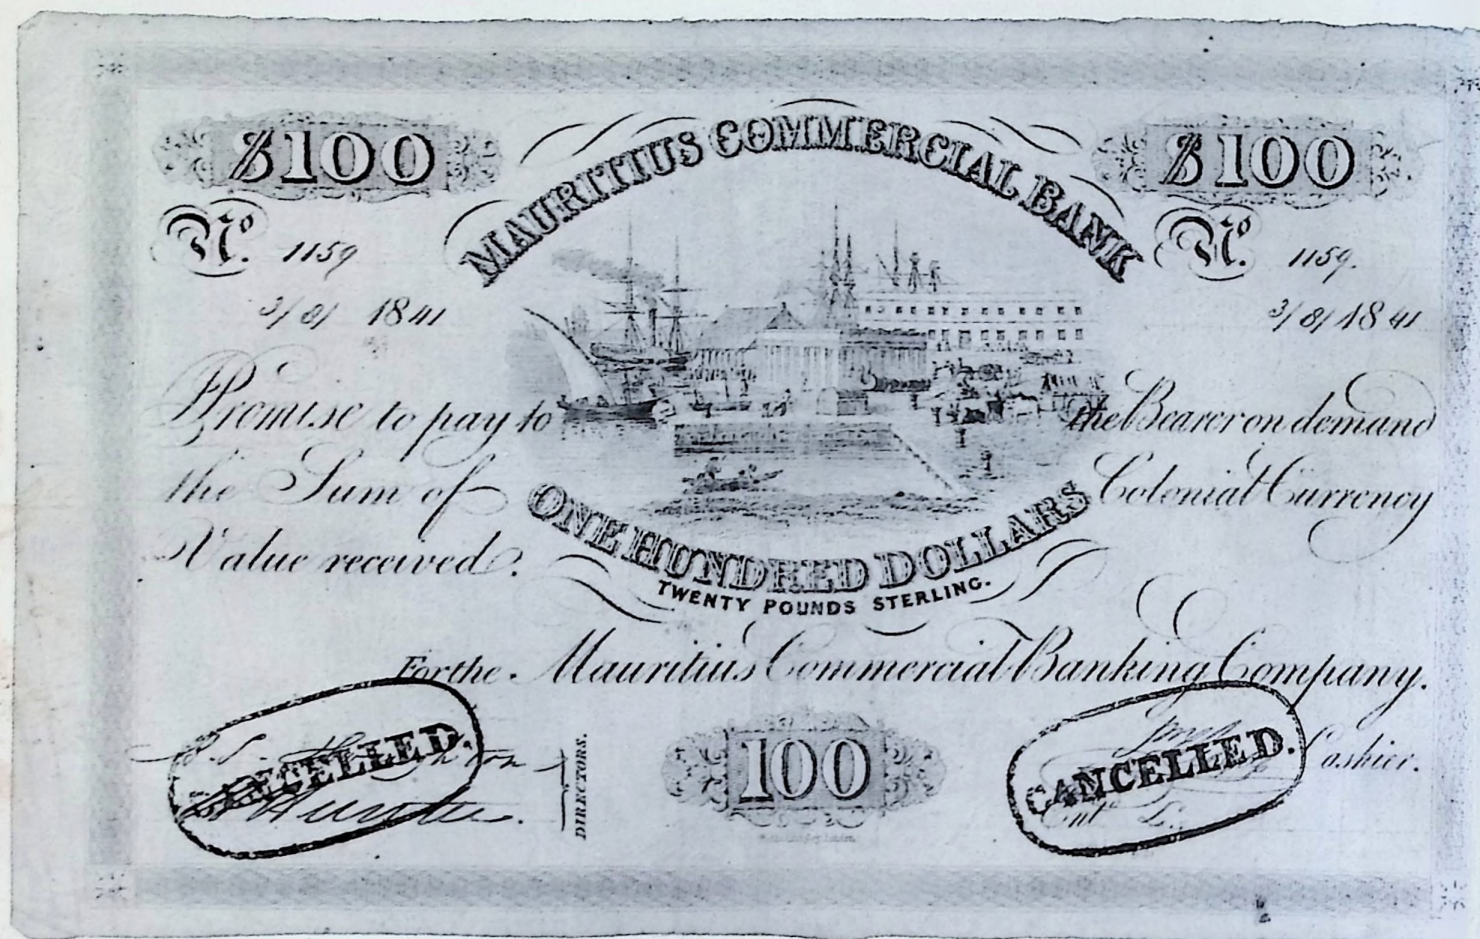 $100 MAURITIUS COMMERCIAL BANK $100
No. 1159 No. 1159.
3/8/1841 3/8/1841
Promise to pay to the Bearer on demand
the Sum of ONE HUNDRED DOLLARS Colonial Currency
Value received.
TWENTY POUNDS STERLING.
For the Mauritius Commercial Banking Company.
CANCELLED. CANCELLED.
DIRECTORS. 100 Cashier.
Hunter
Entd.